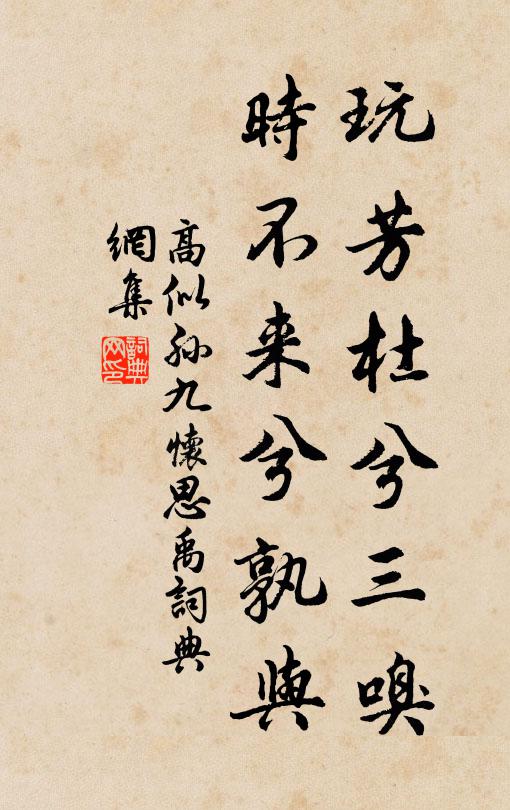 玩芳杜兮三嗅
時不来兮孰與
高似孙九懷思禹詞典
網集
詞典
网印